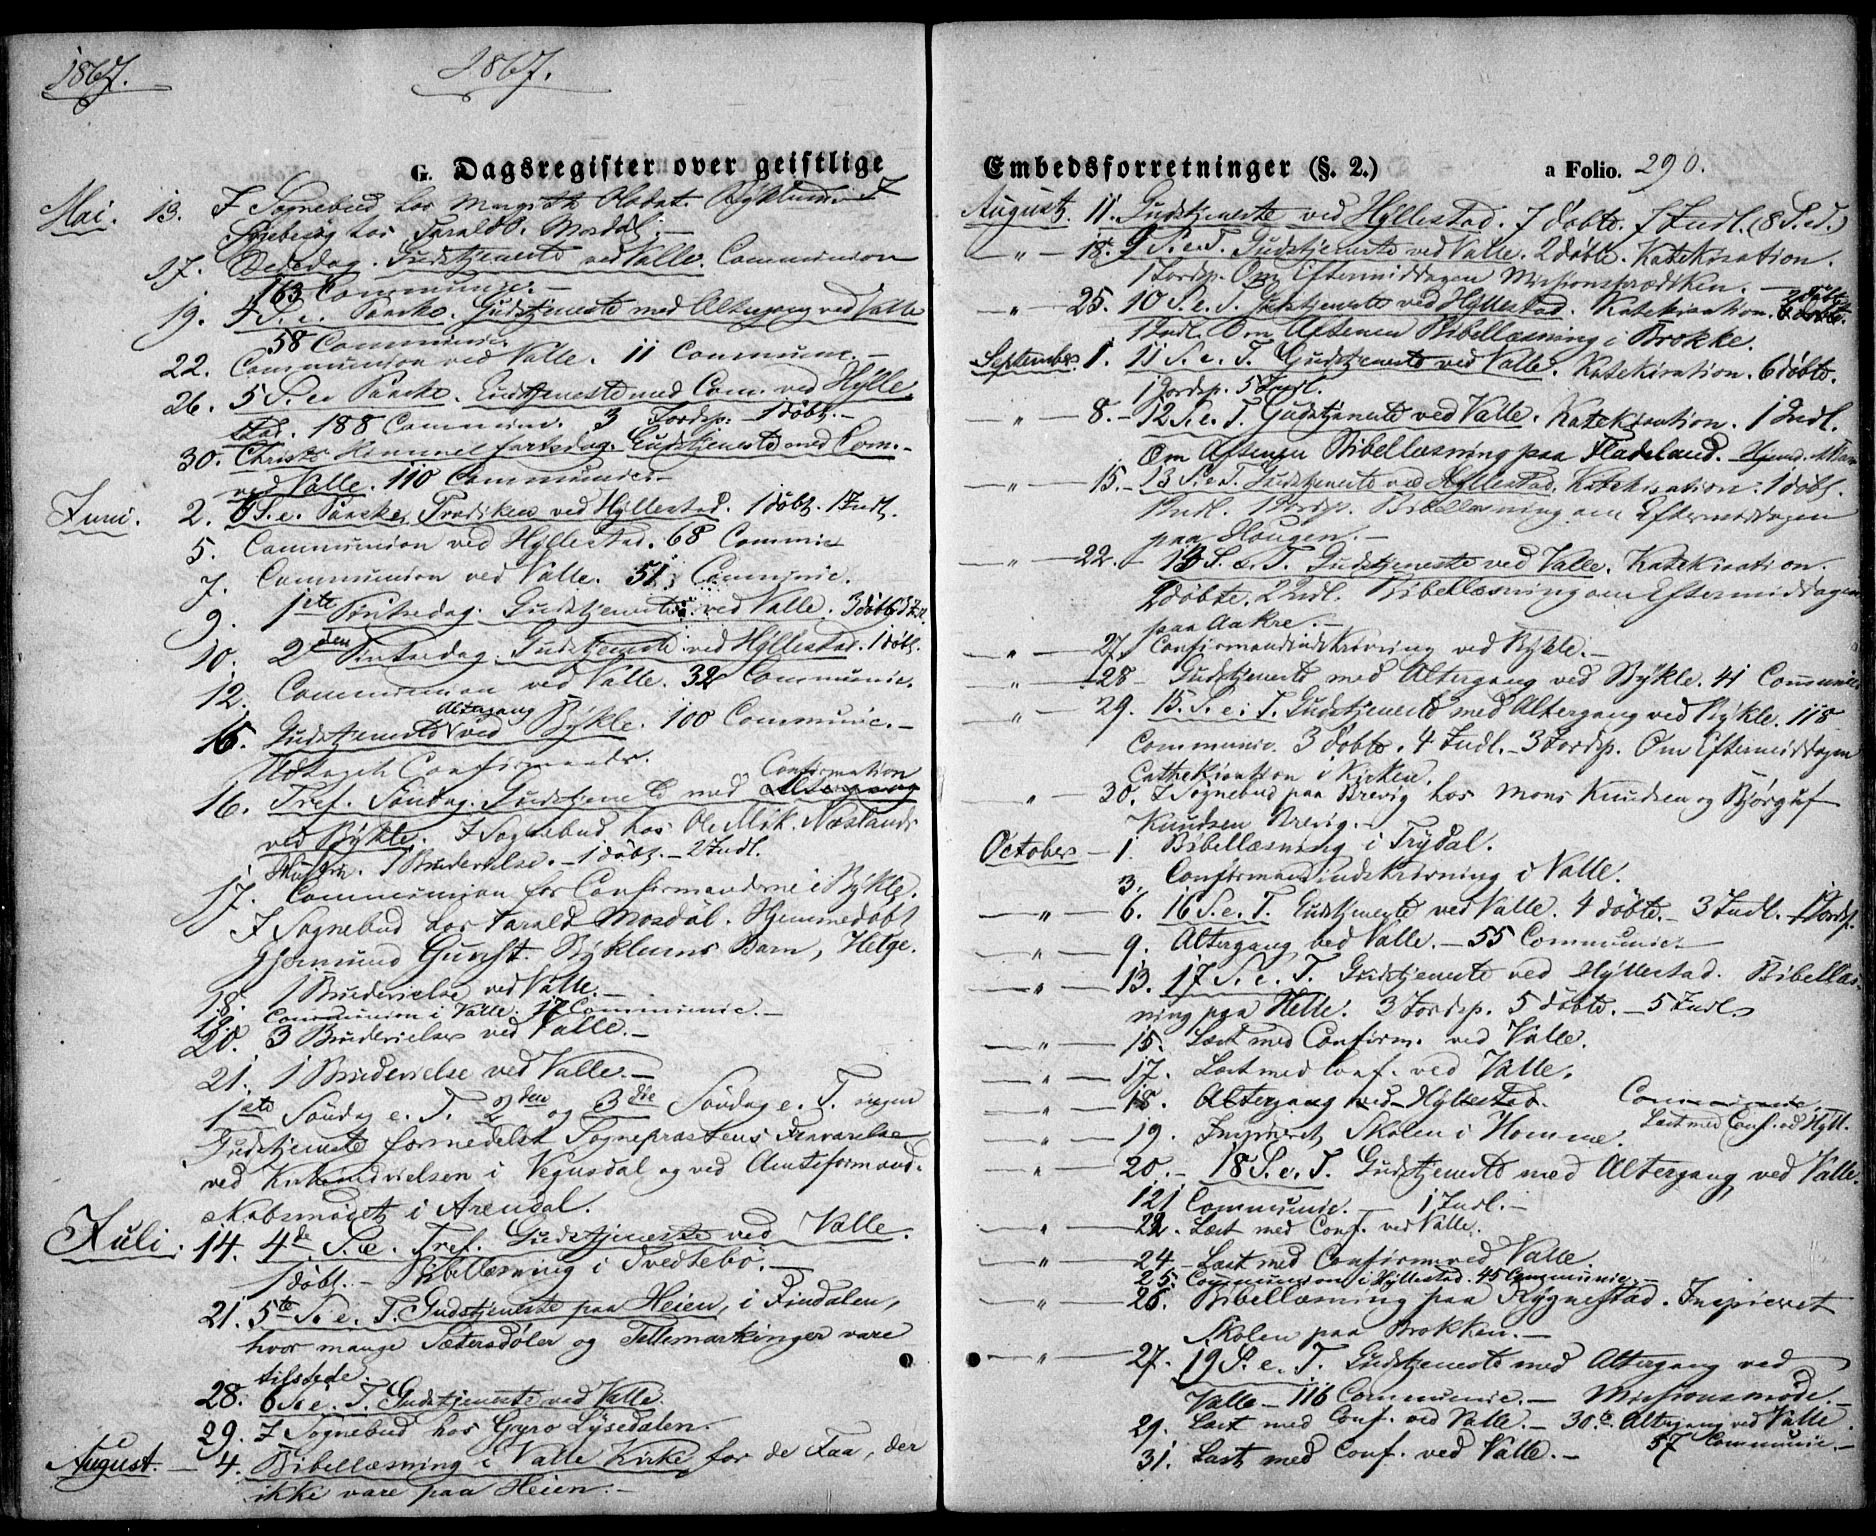 1867.
1867.
G. Dagsregister over geistlige
Mai. 13. I Sognebud hos Margith Olsdat. Byklum. I
Sygebesøg hos Tarald P. Mosdøl. —
17. Bededag. Gudstjeneste ved Valle. Communion
163 Communic. —
19. 4 S. e. Paaske. Gudstjeneste med Altergang ved Valle
58 Communic.
22. Communion ved Valle. 11 Communic. —
26. 5 S. e. Paaske. Gudstjeneste med Com. ved Hylle
stad. 188 Communic. 3 Jordsp. 1 døbt. —
30. Christi Himmelfartsdag. Gudstjeneste med Com.
ved Valle. 110 Communic. —
Juni. 2. 6 S. e. Paaske. Prædiken ved Hyllestad. 1 døbt. 1 Indl.
5. Communion ved Hyllestad. 68 Communic
7. Communion ved Valle. 51. Communic.
9. 1ste Pintsedag. Gudstjeneste ved Valle. 3 døbte
10. 2den Pintsedag. Gudstjeneste ved Hyllestad. 1 døbt.
12. Communion ved Valle. 32 Communic.
15. Gudstjeneste Altergang ved Bykle. 100 Communic. —
Udtaget Confirmander.
16. Tref. Søndag. Gudstjeneste med Altergang Confirmation
ved Bykle. I Sognebud hos Ole Mik. Næslands
1 Brudevielse. — 1 døbt. — 2 Indl.
17. Communion for Confirmanderne i Bykle.
I Sognebud hos Tarald Mosdøl. Hjemmedøbt
Gjermund Gunst. Byklums Barn, Helge.
18. 1 Brudevielse ved Valle. —
19. Communion i Valle. 17 Communic. —
20. 3 Brudevielser ved Valle. —
21. 1 Brudevielse ved Valle. —
1ste Søndag e. T. 2den og 3die Søndag e. T. ingen
Gudstjeneste formedelst Sognepræstens Fraværelse
ved Kirkeindvielsen i Vegusdal og ved Amtsformand-
skabsmødet i Arendal.
Juli. 14. 4de S. e. Tref. Gudstjeneste ved Valle.
1 døbt. — Bibellæsning i Tvedtebø. —
21. 5te S. e. T. Gudstjeneste paa Heien, i Findalen,
hvor mange Sætersdøler og Tellemarkinger vare
tilstede.
28. 6 S. e. T. Gudstjeneste ved Valle.
29. I Sognebud hos Gyro Lysedalen.
August. — 4. Bibellæsning i Valle Kirke for de Faa, der
ikke vare paa Heien. —
Embedsforretninger (§. 2.) a Folio. 290.
August. 11. Gudstjeneste ved Hyllestad. 7 døbte. 7 Indl. (8 S. e. T.)
" — 18. 9 S. e. T. Gudstjeneste ved Valle. 2 døbte. Katekisation.
1 Jordsp. Om Eftermiddagen Missionsprædiken. —
" 25. 10 S. e. T. Gudstjeneste ved Hyllestad. Katekisation. 2 døbte
1 Indl. Om Aftenen Bibellæsning i Brokke.
September. 1. 11 S. e. T. Gudstjeneste ved Valle. Katekisation. 6 døbte.
1 Jordsp. 5 Indl.
" — 8. — 12 S. e. T. Gudstjeneste ved Valle. Katekisation. 1 Indl.
Om Aftenen Bibellæsning paa Fladeland.
" — 15. — 13 S. e. T. Gudstjeneste ved Hyllestad. Katekisation. 1 døbt.
1 Indl. 1 Jordsp. Bibellæsning om Eftermiddagen
paa Hougen. —
" — 22. — S. e. T. Gudstjeneste ved Valle. Katekisation.
2 døbte. 2 Indl. Bibellæsning om Eftermiddagen
paa Aakre. —
" — 27. Confirmandindskrivning ved Bykle. —
" — 28 — Gudstjeneste med Altergang ved Bykle. 41 Communic
" — 29. 15. S. e. T. Gudstjeneste med Altergang ved Bykle. 118
Communic. 3 døbte. 4 Indl. — 3 Jordsp. Om Eftermiddagen
Cathekisation i Kirken.
" 30. I Sognebud paa Brevig hos Mons Knudsen og Bjørguf
Knudsen Brevig. —
October — 1. Bibellæsning i Trydal.
3. Confirmandindskrivning i Valle.
" — 6. 16 S. e. T. Gudstjeneste ved Valle. 4 døbte. — 3 Indl. — 1 Jordsp.
" 9. Altergang ved Valle. — 55 Communic. —
" — 13. 17 S. e. T. Gudstjeneste ved Hyllestad. Bibellæs-
ning paa Helle. 3 Jordsp. 5 døbte. — 5 Indl.
" — 15. Læst med Confirm. ved Valle.
" — 17. Læst med Conf. ved Valle.
" — 18. Altergang ved Hyllestad. Communic
Læst med Conf. ved Hyll.
" — 19. Inspiceret Skolen i Homme.
" 20. — 18 S. e. T. Gudstjeneste med Altergang ved Valle.
121 Communic. — 1 Indl. —
" 22. Læst med Conf. ved Valle.
" 24. Læst med Confirm ved Valle.
25. Communion i Hyllestad. 45 Communic. —
" 26. Bibellæsning paa Rygnestad. Inspiceret
Skolen paa Brokken. —
" 27. 19 S. e. T. Gudstjeneste med Altergang ved
Valle — 116 Communic. — Missionsmøde. —
29. Læst med Conf. ved Valle. — 30te Altergang ved Valle.
57 Communic —
31. Læst med Conf. ved Valle. —